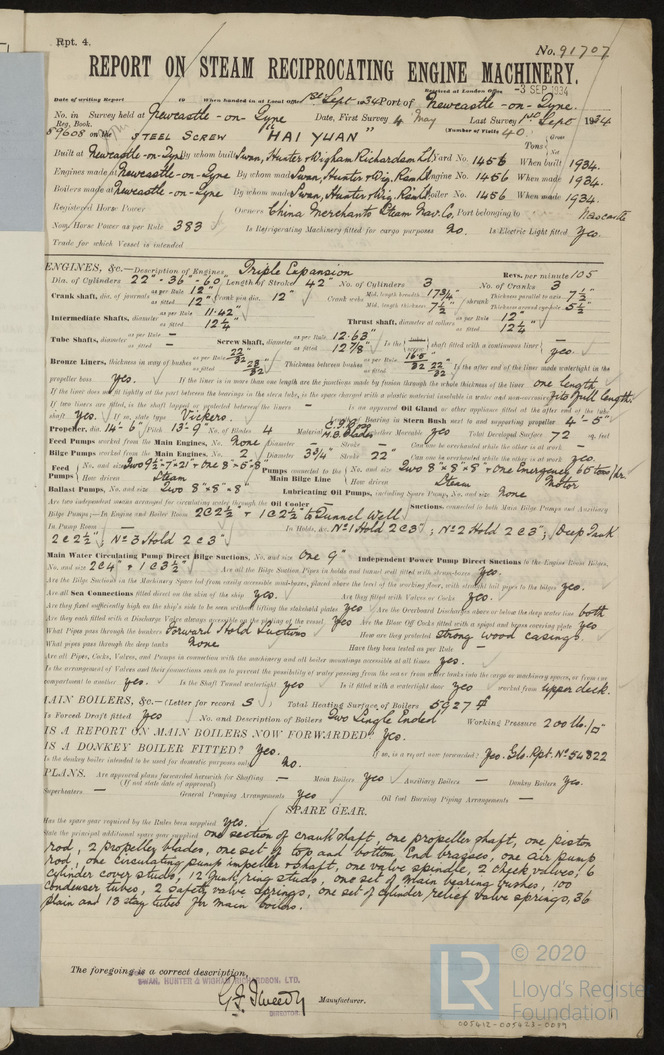 Rpt. 4. No. 91707
REPORT ON STEAM RECIPROCATING ENGINE MACHINERY.
Received at London Office -3 SEP 1934
Date of writing Report 19 When handed in at Local Office 1st Sept 1934 Port of Newcastle-on-Tyne.
No. in Survey held at Newcastle-on-Tyne Date, First Survey 4 May Last Survey 1st Sept 1934
Reg. Book. (Number of Visits 40
59608 on the STEEL SCREW "HAI YUAN" Tons Gross Net
Built at Newcastle-on-Tyne By whom built Swan, Hunter & Wigham Richardson Ld Yard No. 1456 When built 1934.
Engines made at Newcastle-on-Tyne By whom made Swan, Hunter & Wig. Rich. Ld Engine No. 1456 When made 1934.
Boilers made at Newcastle-on-Tyne By whom made Swan, Hunter & Wig. Rich. Ld Boiler No. 1456 When made 1934.
Registered Horse Power Owners China Merchants Steam Nav. Co. Port belonging to
Nom. Horse Power as per Rule 383 Is Refrigerating Machinery fitted for cargo purposes No. Is Electric Light fitted Yes.
Trade for which Vessel is intended
ENGINES, &c.—Description of Engines Triple Expansion Revs. per minute 105
Dia. of Cylinders 22"-36"-60" Length of Stroke 42" No. of Cylinders 3 No. of Cranks 3
Crank shaft, dia. of journals as per Rule 12" as fitted 12" Crank pin dia. 12" Crank webs Mid. length breadth 17¾" Mid. length thickness 7½" shrunk Thickness parallel to axis 7½" Thickness around eyehole 5½"
Intermediate Shafts, diameter as per Rule 11.42" as fitted 12¼" Thrust shaft, diameter at collars as per Rule 12" as fitted 12¼"
Tube Shafts, diameter as per Rule — as fitted — Screw Shaft, diameter as per Rule 12.63" as fitted 12⅞" Is the shaft fitted with a continuous liner yes.
Bronze Liners, thickness in way of bushes as per Rule as fitted Thickness between bushes as per Rule as fitted Is the after end of the liner made watertight in the
propeller boss yes. If the liner is in more than one length are the joints made by fusion through the whole thickness of the liner one length.
If the liner does not fit tightly at the part between the bearings in the stern tube, is the space charged with a plastic material insoluble in water and non-corrosive fits full length
If two liners are fitted, is the shaft lapped or protected between the liners — Is an approved Oil Gland or other appliance fitted at the after end of the tube
shaft Yes. If so, state type Vickers. Length of Bearing in Stern Bush next to and supporting propeller 4'-5"
Propeller, dia. 14'-6" Pitch 13'-9" No. of Blades 4 Material whether Moveable yes Total Developed Surface 72 sq. feet
Feed Pumps worked from the Main Engines, No. None Diameter — Stroke — Can one be overhauled while the other is at work —
Bilge Pumps worked from the Main Engines, No. 2 Diameter 3¾" Stroke 22" Can one be overhauled while the other is at work yes.
Feed Pumps No. and size Two 9½"-7"-21" + One 8"-5"-8" Pumps connected to the Main Bilge Line No. and size Two 8"×8"×8" + One Emergency 65 tons/hr.
How driven Steam How driven Steam Motor
Ballast Pumps, No. and size Two 8"×8"×8" Lubricating Oil Pumps, including Spare Pump, No. and size None
Are two independent means arranged for circulating water through the Oil Cooler — Suctions, connected to both Main Bilge Pumps and Auxiliary
Bilge Pumps;—In Engine and Boiler Room 2 @ 2½" + 1 @ 2½" to Tunnel Well
In Pump Room In Holds, &c. No 1 Hold 2 @ 3"; No 2 Hold 2 @ 3"; Deep Tank
2 @ 2½"; No 3 Hold 2 @ 3"
Main Water Circulating Pump Direct Bilge Suctions, No. and size One 9" Independent Power Pump Direct Suctions to the Engine Room Bilges,
No. and size 2 @ 4" + 1 @ 3½" Are all the Bilge Suction Pipes in holds and tunnel well fitted with strum-boxes yes.
Are the Bilge Suctions in the Machinery Space led from easily accessible mud-boxes, placed above the level of the working floor, with straight tail pipes to the bilges yes.
Are all Sea Connections fitted direct on the skin of the ship yes. Are they fitted with Valves or Cocks yes.
Are they fixed sufficiently high on the ship's side to be seen without lifting the stokehold plates yes Are the Overboard Discharges above or below the deep water line both
Are they each fitted with a Discharge Valve always accessible on the plating of the vessel yes Are the Blow Off Cocks fitted with a spigot and brass covering plate yes
What Pipes pass through the bunkers Forward Hold Suctions How are they protected strong wood casings.
What pipes pass through the deep tanks None Have they been tested as per Rule —
Are all Pipes, Cocks, Valves, and Pumps in connection with the machinery and all boiler mountings accessible at all times yes.
Is the arrangement of Valves and their connections such as to prevent the possibility of water passing from the sea or from water tanks into the cargo or machinery spaces, or from one
compartment to another yes. Is the Shaft Tunnel watertight yes Is it fitted with a watertight door yes worked from upper deck.
MAIN BOILERS, &c.—(Letter for record S) Total Heating Surface of Boilers 5927 ▯'
Is Forced Draft fitted Yes No. and Description of Boilers Two Single Ended Working Pressure 200 lb./▯"
IS A REPORT ON MAIN BOILERS NOW FORWARDED? Yes.
IS A DONKEY BOILER FITTED? Yes. If so, is a report now forwarded? Yes. Glo. Rpt. No 54822
Is the donkey boiler intended to be used for domestic purposes only No.
PLANS. Are approved plans forwarded herewith for Shafting — Main Boilers Yes Auxiliary Boilers — Donkey Boilers Yes.
(If not state date of approval)
Superheaters — General Pumping Arrangements Yes Oil fuel Burning Piping Arrangements —
SPARE GEAR.
Has the spare gear required by the Rules been supplied yes.
State the principal additional spare gear supplied one section of crank shaft, one propeller shaft, one piston
rod, 2 propeller blades, one set of top and bottom End brasses, one air pump
rod, one circulating pump impeller + shaft, one valve spindle, 2 check valves, 6
cylinder cover studs, 12 junk ring studs, one set of main bearing bushes, 100
condenser tubes, 2 safety valve springs, one set of cylinder relief valve springs, 36
plain and 13 stay tubes for main boilers.
The foregoing is a correct description,
SWAN, HUNTER & WIGHAM RICHARDSON, LTD.
G. F. Tweedy Manufacturer.
DIRECTOR.
LR © 2020
Lloyd's Register
Foundation
005412-005423-0089